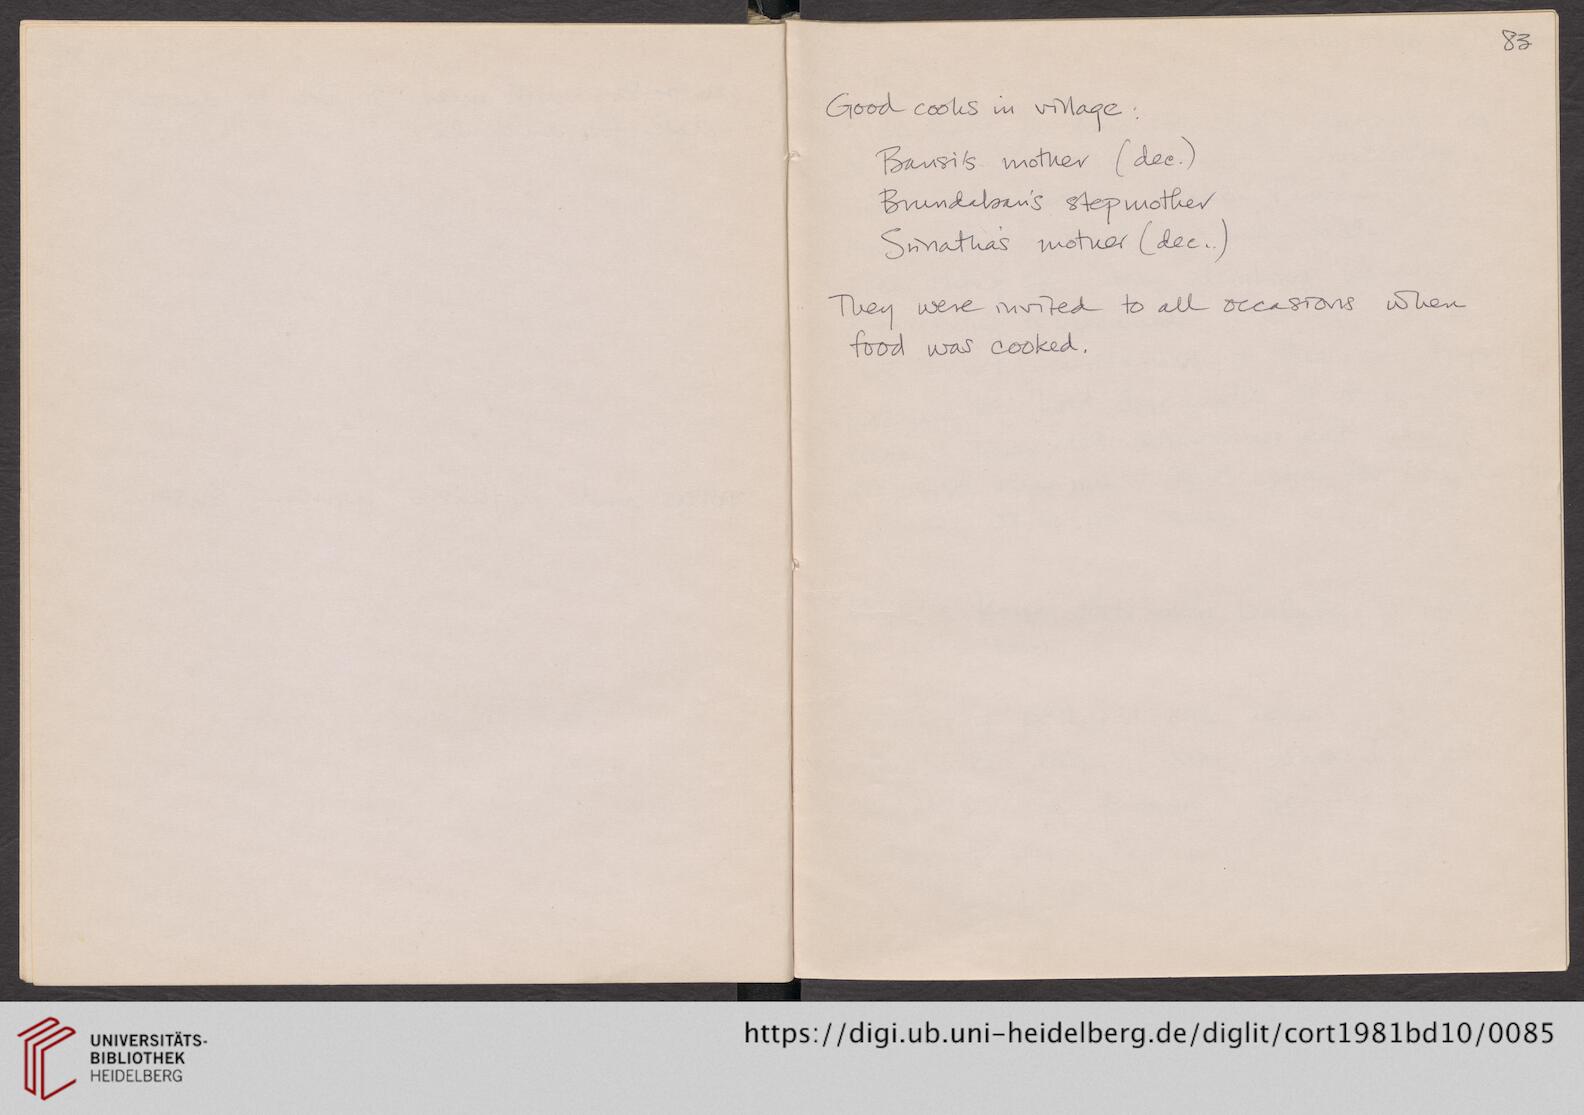 83
Good cooks in village:
Bansi's mother (dec.)
Brundaban's stepmother
Srinatha's mother (dec..)
They were invited to all occasions when
food was cooked.
UNIVERSITÄTS-
BIBLIOTHEK
HEIDELBERG
https://digi.ub.uni-heidelberg.de/diglit/cort1981bd10/0085